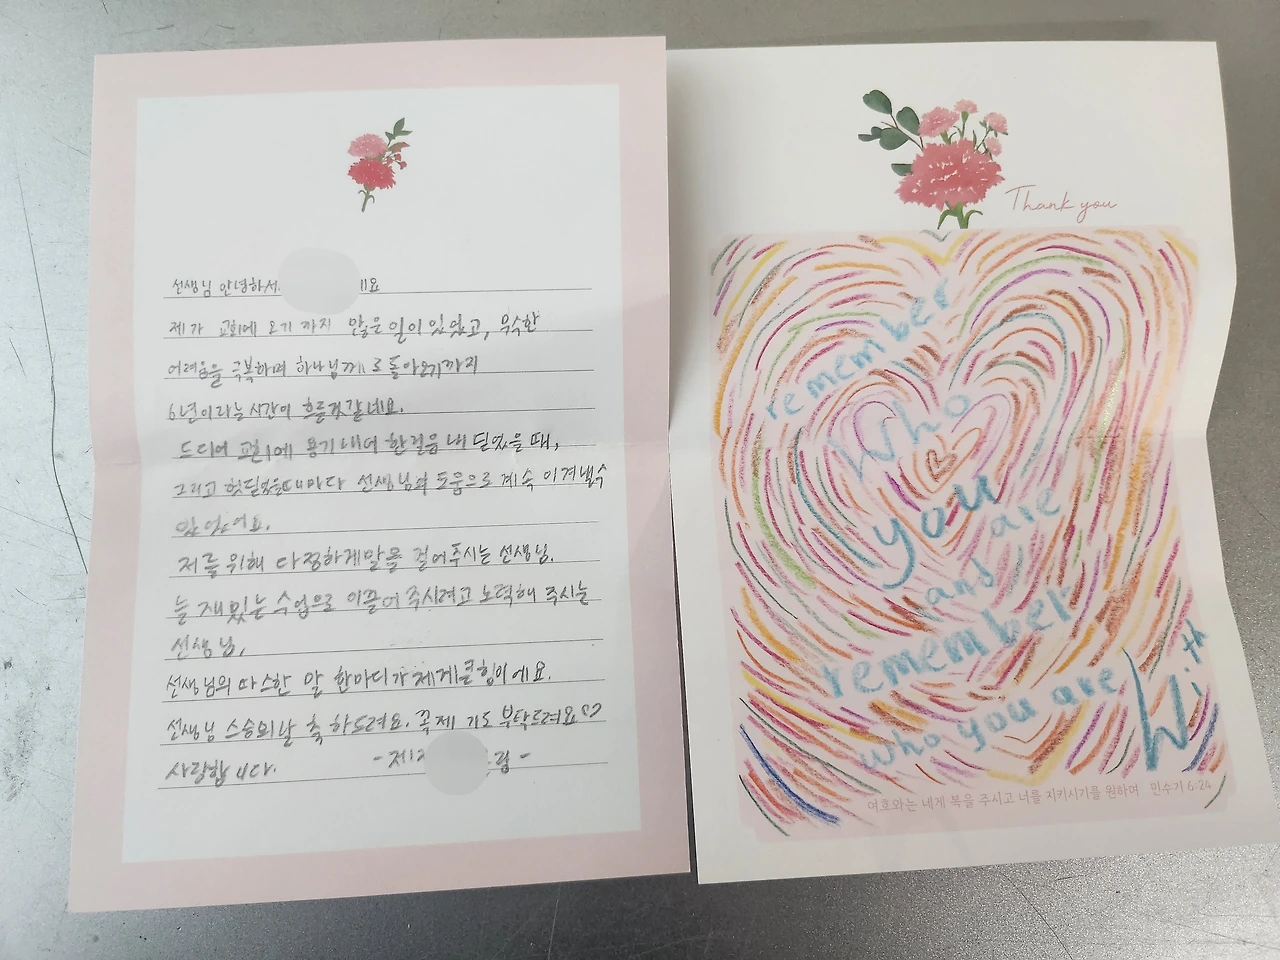 선생님 안녕하서 ㅔ요
제가 교회에 오기 까지 많은 일이 있었고, 무수한
어려움을 극복하며 하나님께로 돌아오기까지
6년이라는 시간이 흐른것같네요.
드디어 교회에 용기내어 한걸음 내 딛었을 때,
그리고 헛딛었을때마다 선생님의 도움으로 계속 이겨낼수
있었어요.
저를 위해 다정하게말을 걸어주시는 선생님.
늘 재밌는 수업으로 이끌어 주시려고 노력해 주시는
선생님,
선생님의 따스한 말 한마디가 제게큰힘이에요.
선생님 스승의날 축하드려요. 꼭 제 기도 부탁드려요♡
사랑합니다. -제1 림-
Thank you
remember
who
you are
and
remember
who you are
With
여호와는 네게 복을 주시고 너를 지키시기를 원하며 민수기 6:24